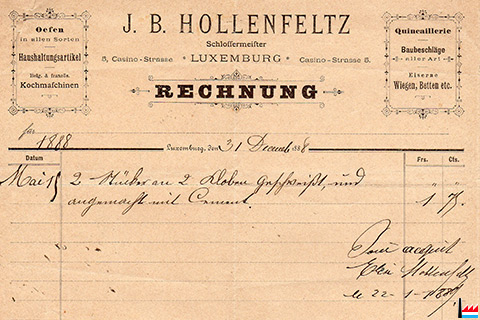 J. B. HOLLENFELTZ
Schlossermeister
5, Casino-Strasse * LUXEMBURG * Casino-Strasse 5.
RECHNUNG
Oefen
in allen Sorten
Haushaltungsartikel
Belg. & französ.
Kochmaschinen
Quincaillerie
Baubeschläge
aller Art
Eiserne
Wiegen, Betten etc.
für
1888
Luxemburg, den 31 Decemb 1888
Datum Frs. Cts.
Mai 15 2 Stücker an 2 Kloben geschweißt, und " "
angemacht mit Cement. 1 75
Pour acquit
Hollenfeltz
le 22-1-1889